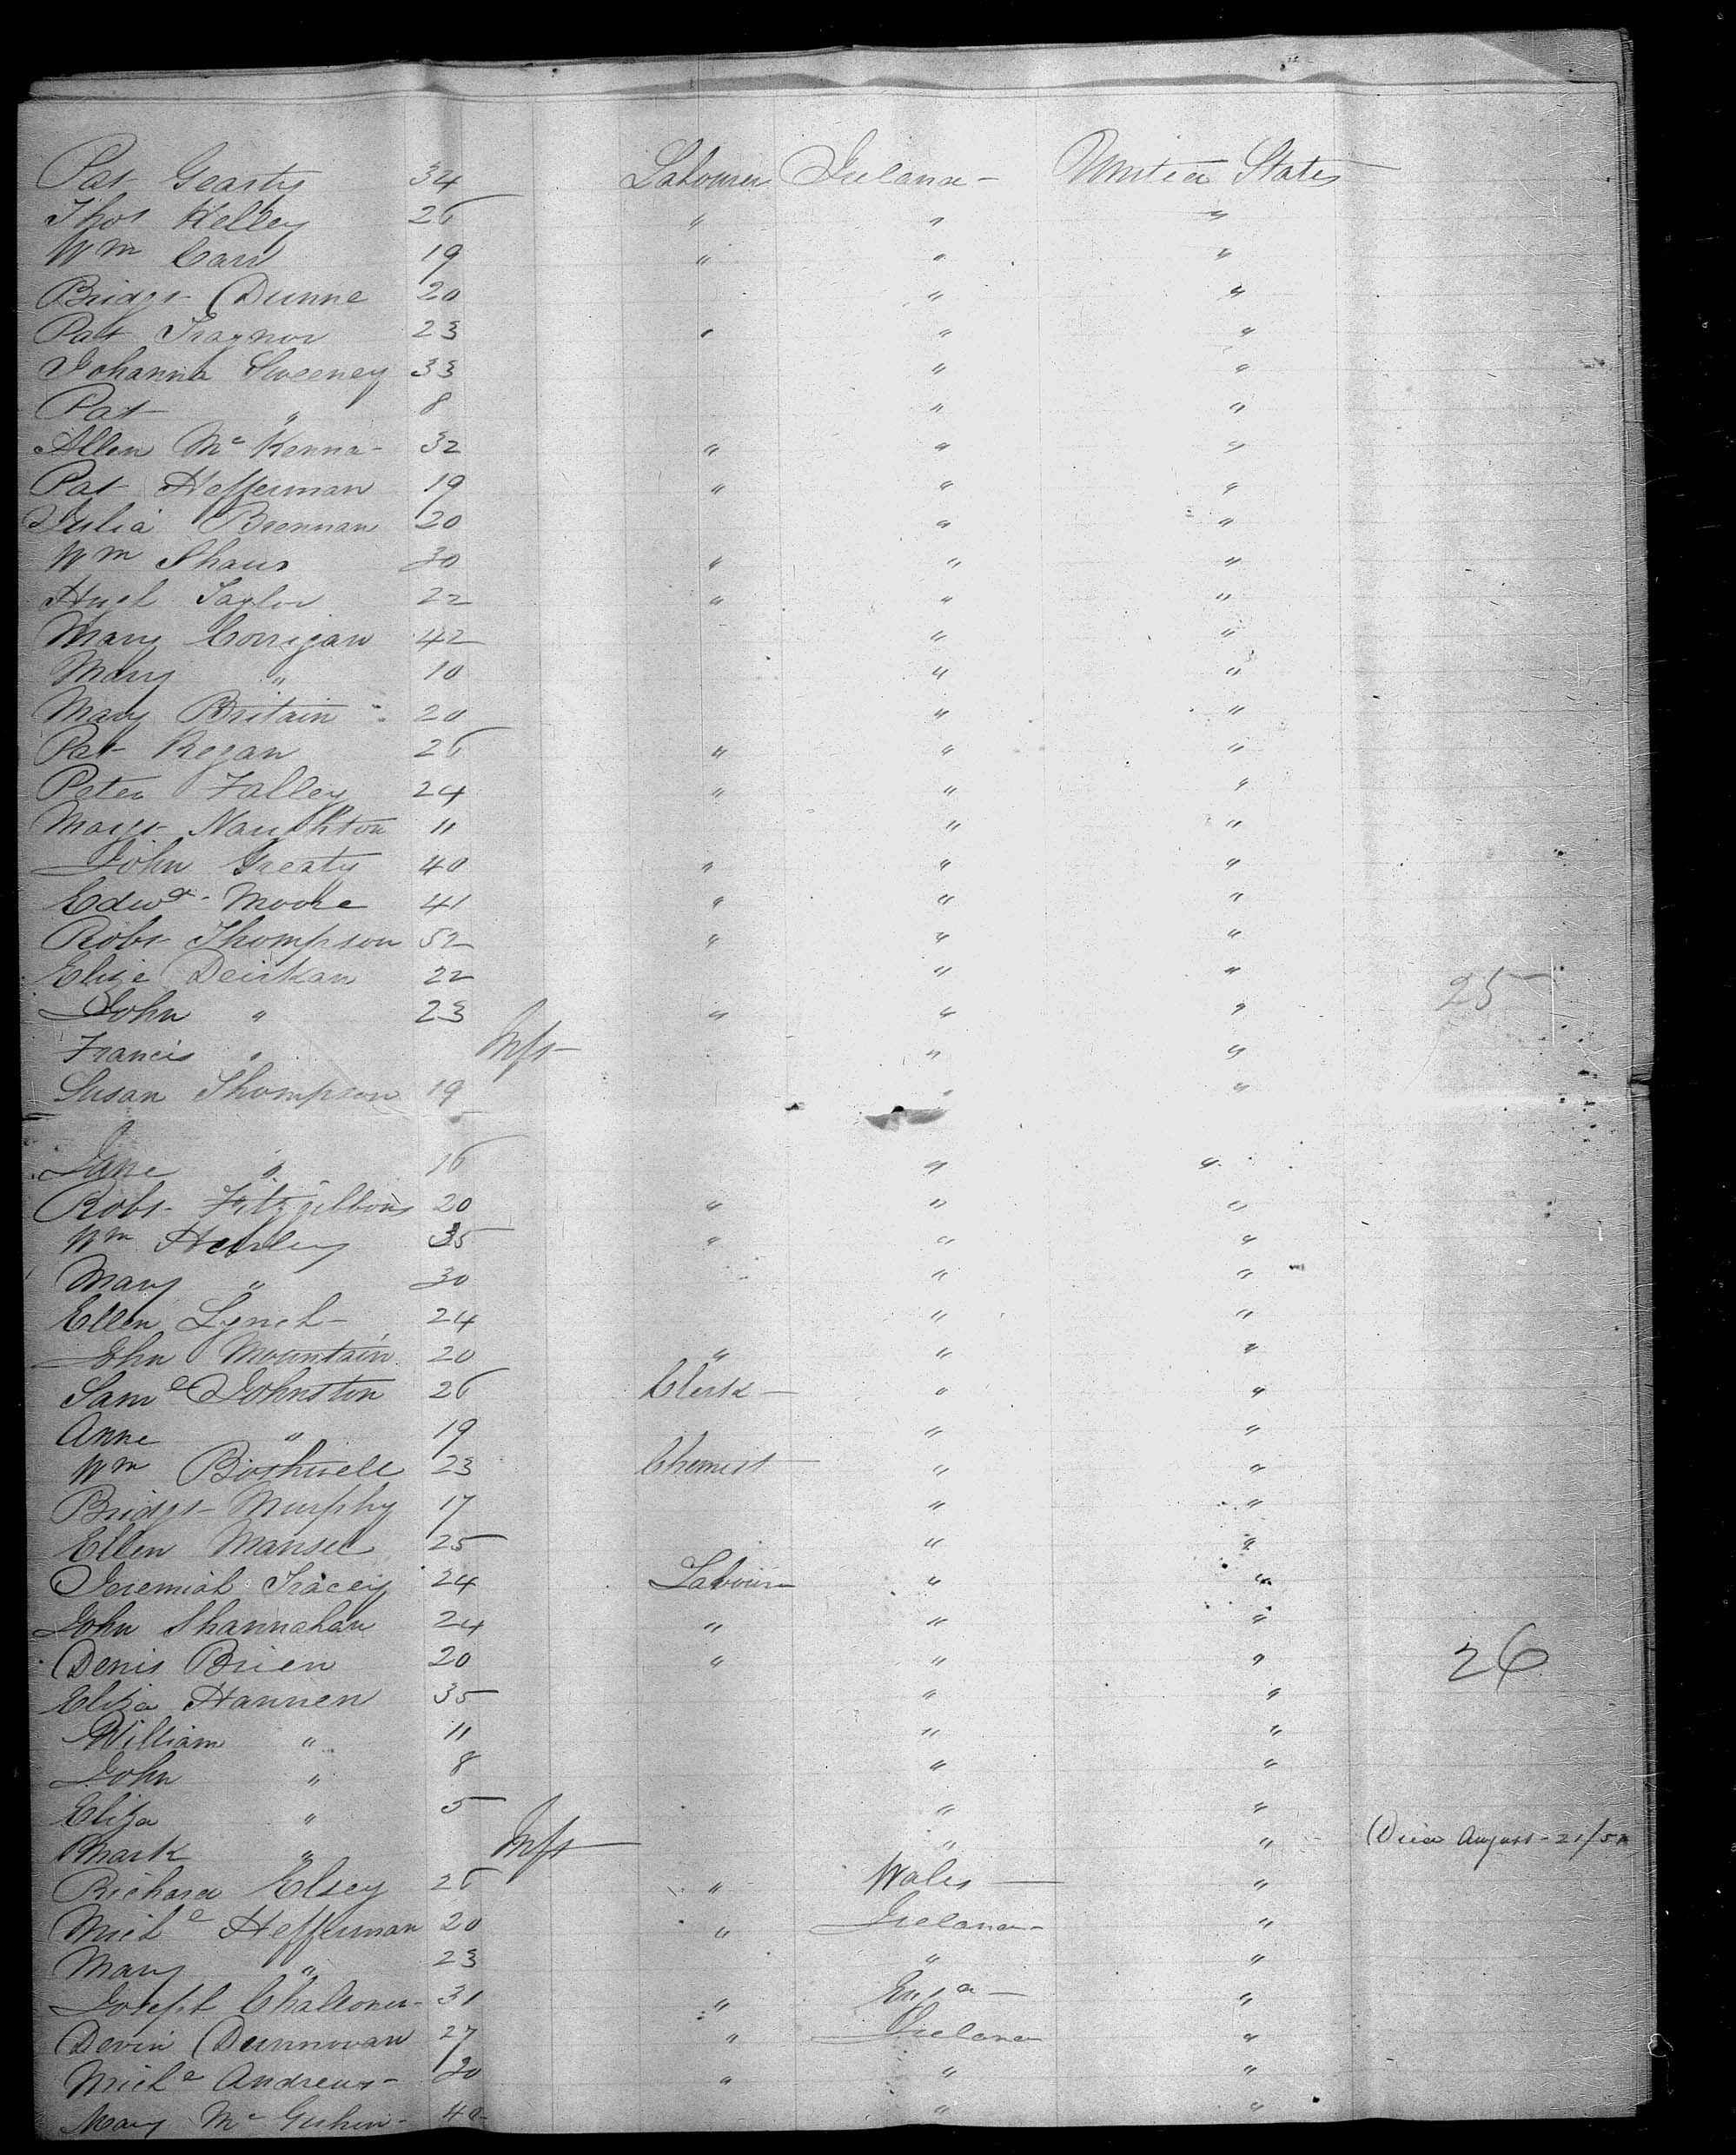 Pat Gearty 34 Labourer Ireland - United States
Thos Kelley 26 " " "
Wm Carr 19 " " "
Bridgt Dunne 20 " "
Pat Traynor 23 " " "
Johanna Sweeney 33 " "
Pat " 8 " "
Allen McKenna - 32 " " "
Pat Heffernan 19 " " "
Julia Brennan 20 " "
Wm Shaw 30 " " "
Hugh Taylor 22 " " "
Mary Corrigan 42 " "
Mary " 10 " "
Mary Britain 20 " "
Pat Regan 26 " " "
Peter Falley 24 " " "
Margt Naughton 11 " "
John Greaty 40 " " "
Edwd Moore 41 " " "
Robt Thompson 52 " " "
Elize 22 " "
25
John " 23 " " "
Francis " Inft " "
Susan Thompson 19 " "
Jane " 16 " "
Robt Fitzgibbons 20 " " "
Wm Hurley 35 " " "
Mary " 30 " "
Ellen Lynch - 24 " "
John Mountain 20 " " "
Saml Johnston 26 Clerk - " "
Anne " 19 " "
Wm Bothwell 23 Chemist " "
Bridgt Murphy 17 " "
Ellen Mansel 25 " "
Jeremiah Tracey 24 Labourer " "
John Shannahan 24 " " "
Denis Brien 20 " " "
26
Eliza Hannen 35 " "
William " 11 " "
John " 8 " "
Eliza " 5 " "
Mark " Inft " " Died August 21/5
Richard Elsey 26 " Wales "
Michl Heffernan 20 " Ireland "
Mary " 23 " "
Joseph Challoner 31 " Engd - "
Devin Dunnovan 27 " Ireland "
Michl Andrews - 20 " " "
Mary Mc 40 " "